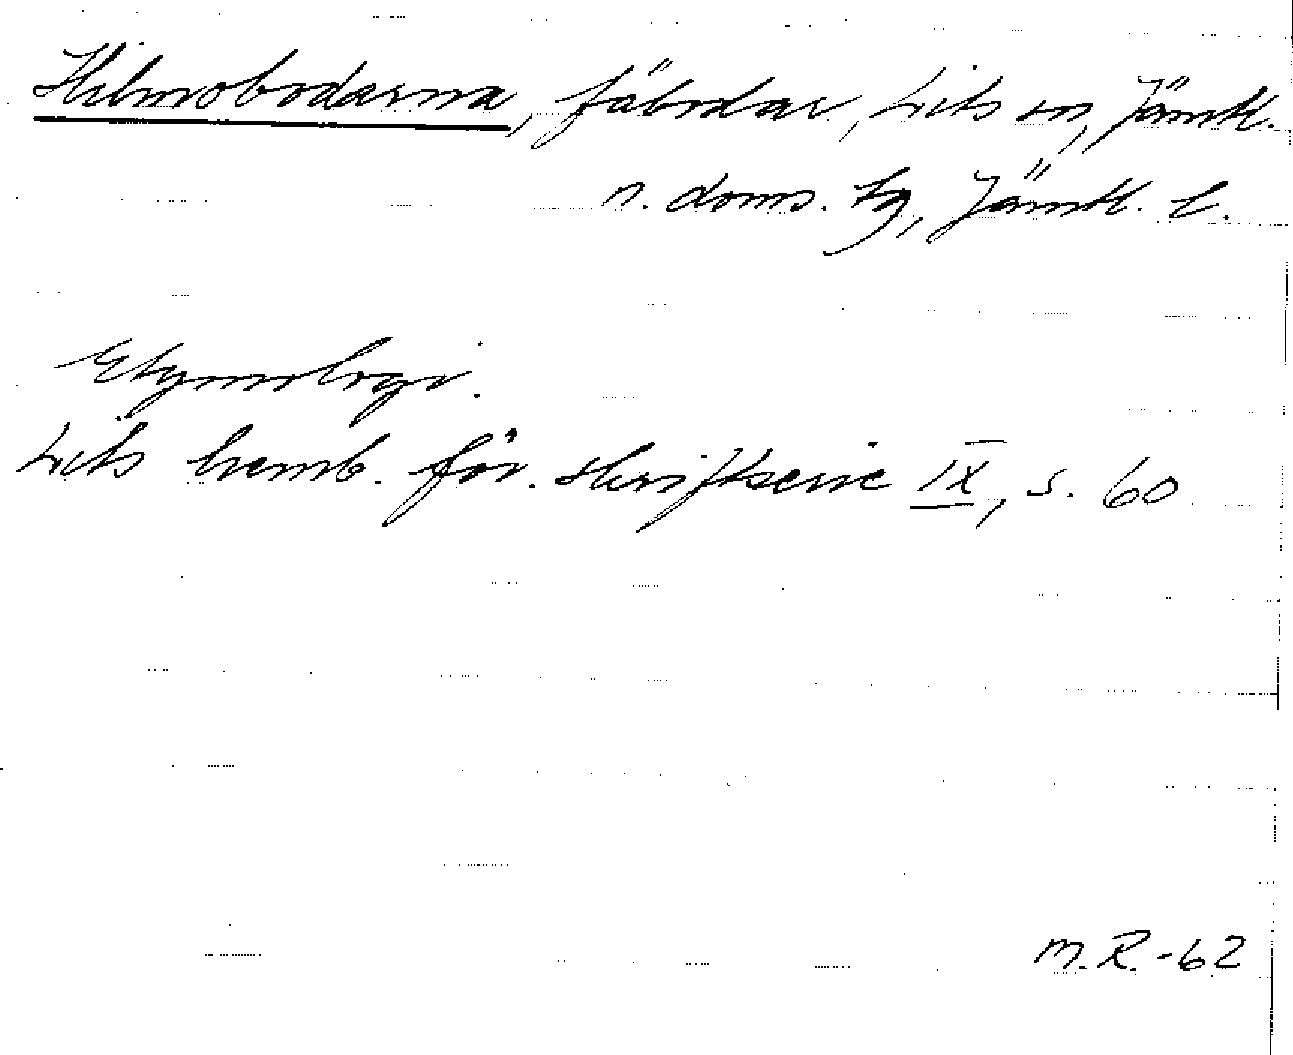 Hilmobodarna, fäbodar, Lits sn, Jämtl.
n. doms. tg, Jämtl. l.
Etymologi.
Lits hemb. för. skriftserie IX, s. 60
M.R.-62